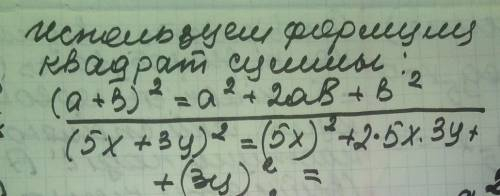 используем формулу
квадрат суммы:
(а+в)² = а² + 2ав + в²
(5x + 3y)² = (5x)² + 2·5x·3y +
+ (3y)² =